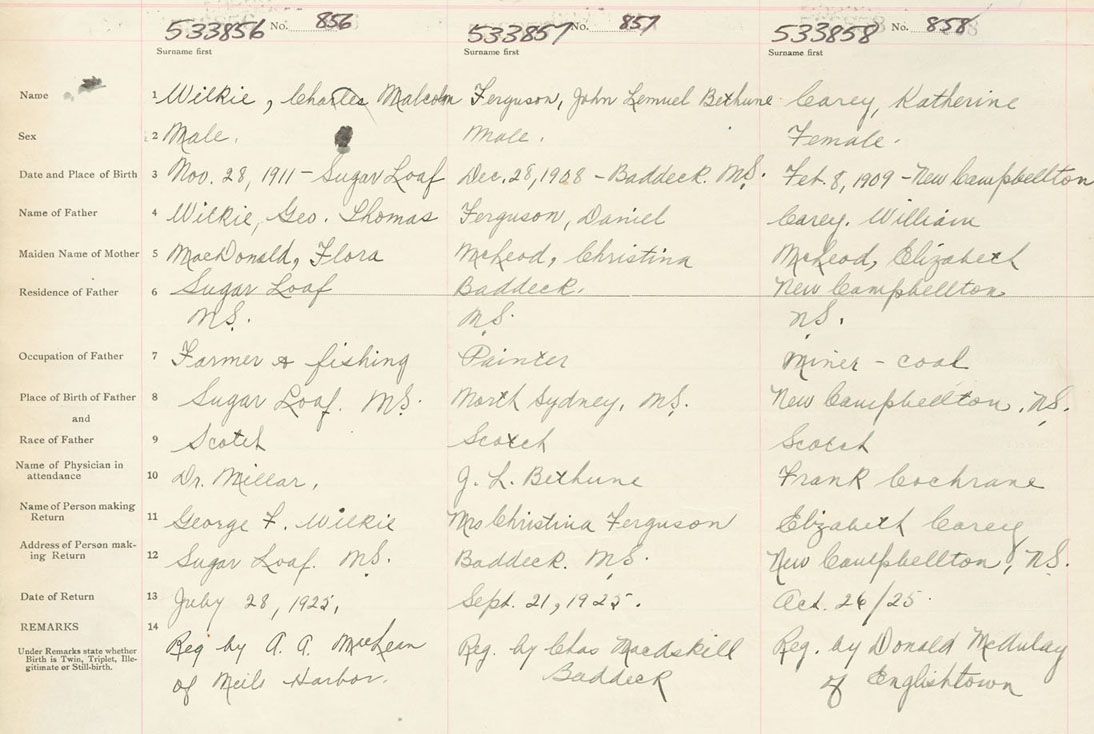 533856 No. 856 533857 No. 857 533858 No. 858
Surname first Surname first Surname first
Name 1 Wilkie, Charles Malcolm Ferguson, John Lemuel Bethune Carey, Katherine
Sex 2 Male. Male. Female.
Date and Place of Birth 3 Nov. 28, 1911 - Sugar Loaf Dec. 28, 1908 - Baddeck. N.S. Feb. 8, 1909 - New Campbellton
Name of Father 4 Wilkie, Geo. Thomas Ferguson, Daniel Carey. William
Maiden Name of Mother 5 MacDonald, Flora McLeod, Christina McLeod, Elizabeth
Residence of Father 6 Sugar Loaf Baddeck. New Campbellton
N.S. N.S. N.S.
Occupation of Father 7 Farmer & fishing Painter Miner - coal
Place of Birth of Father 8 Sugar Loaf. N.S. North Sydney, N.S. New Campbellton, N.S.
and
Race of Father 9 Scotch Scotch Scotch
Name of Physician in
attendance 10 Dr. Millar. J. L. Bethune Frank Cochrane
Name of Person making
Return 11 George F. Wilkie Mrs Christina Ferguson Elizabeth Carey
Address of Person mak-
ing Return 12 Sugar Loaf. N.S. Baddeck. N.S. New Campbellton, N.S.
Date of Return 13 July 28, 1925. Sept. 21, 1925. Oct. 26/25.
REMARKS 14
Under Remarks state whether
Birth is Twin, Triplet, Ille-
gitimate or Still-birth.
Reg by A. A. MacLean Reg. by Chas Macaskill Reg. by Donald McAulay
of Neils Harbor. Baddeck of Englishtown